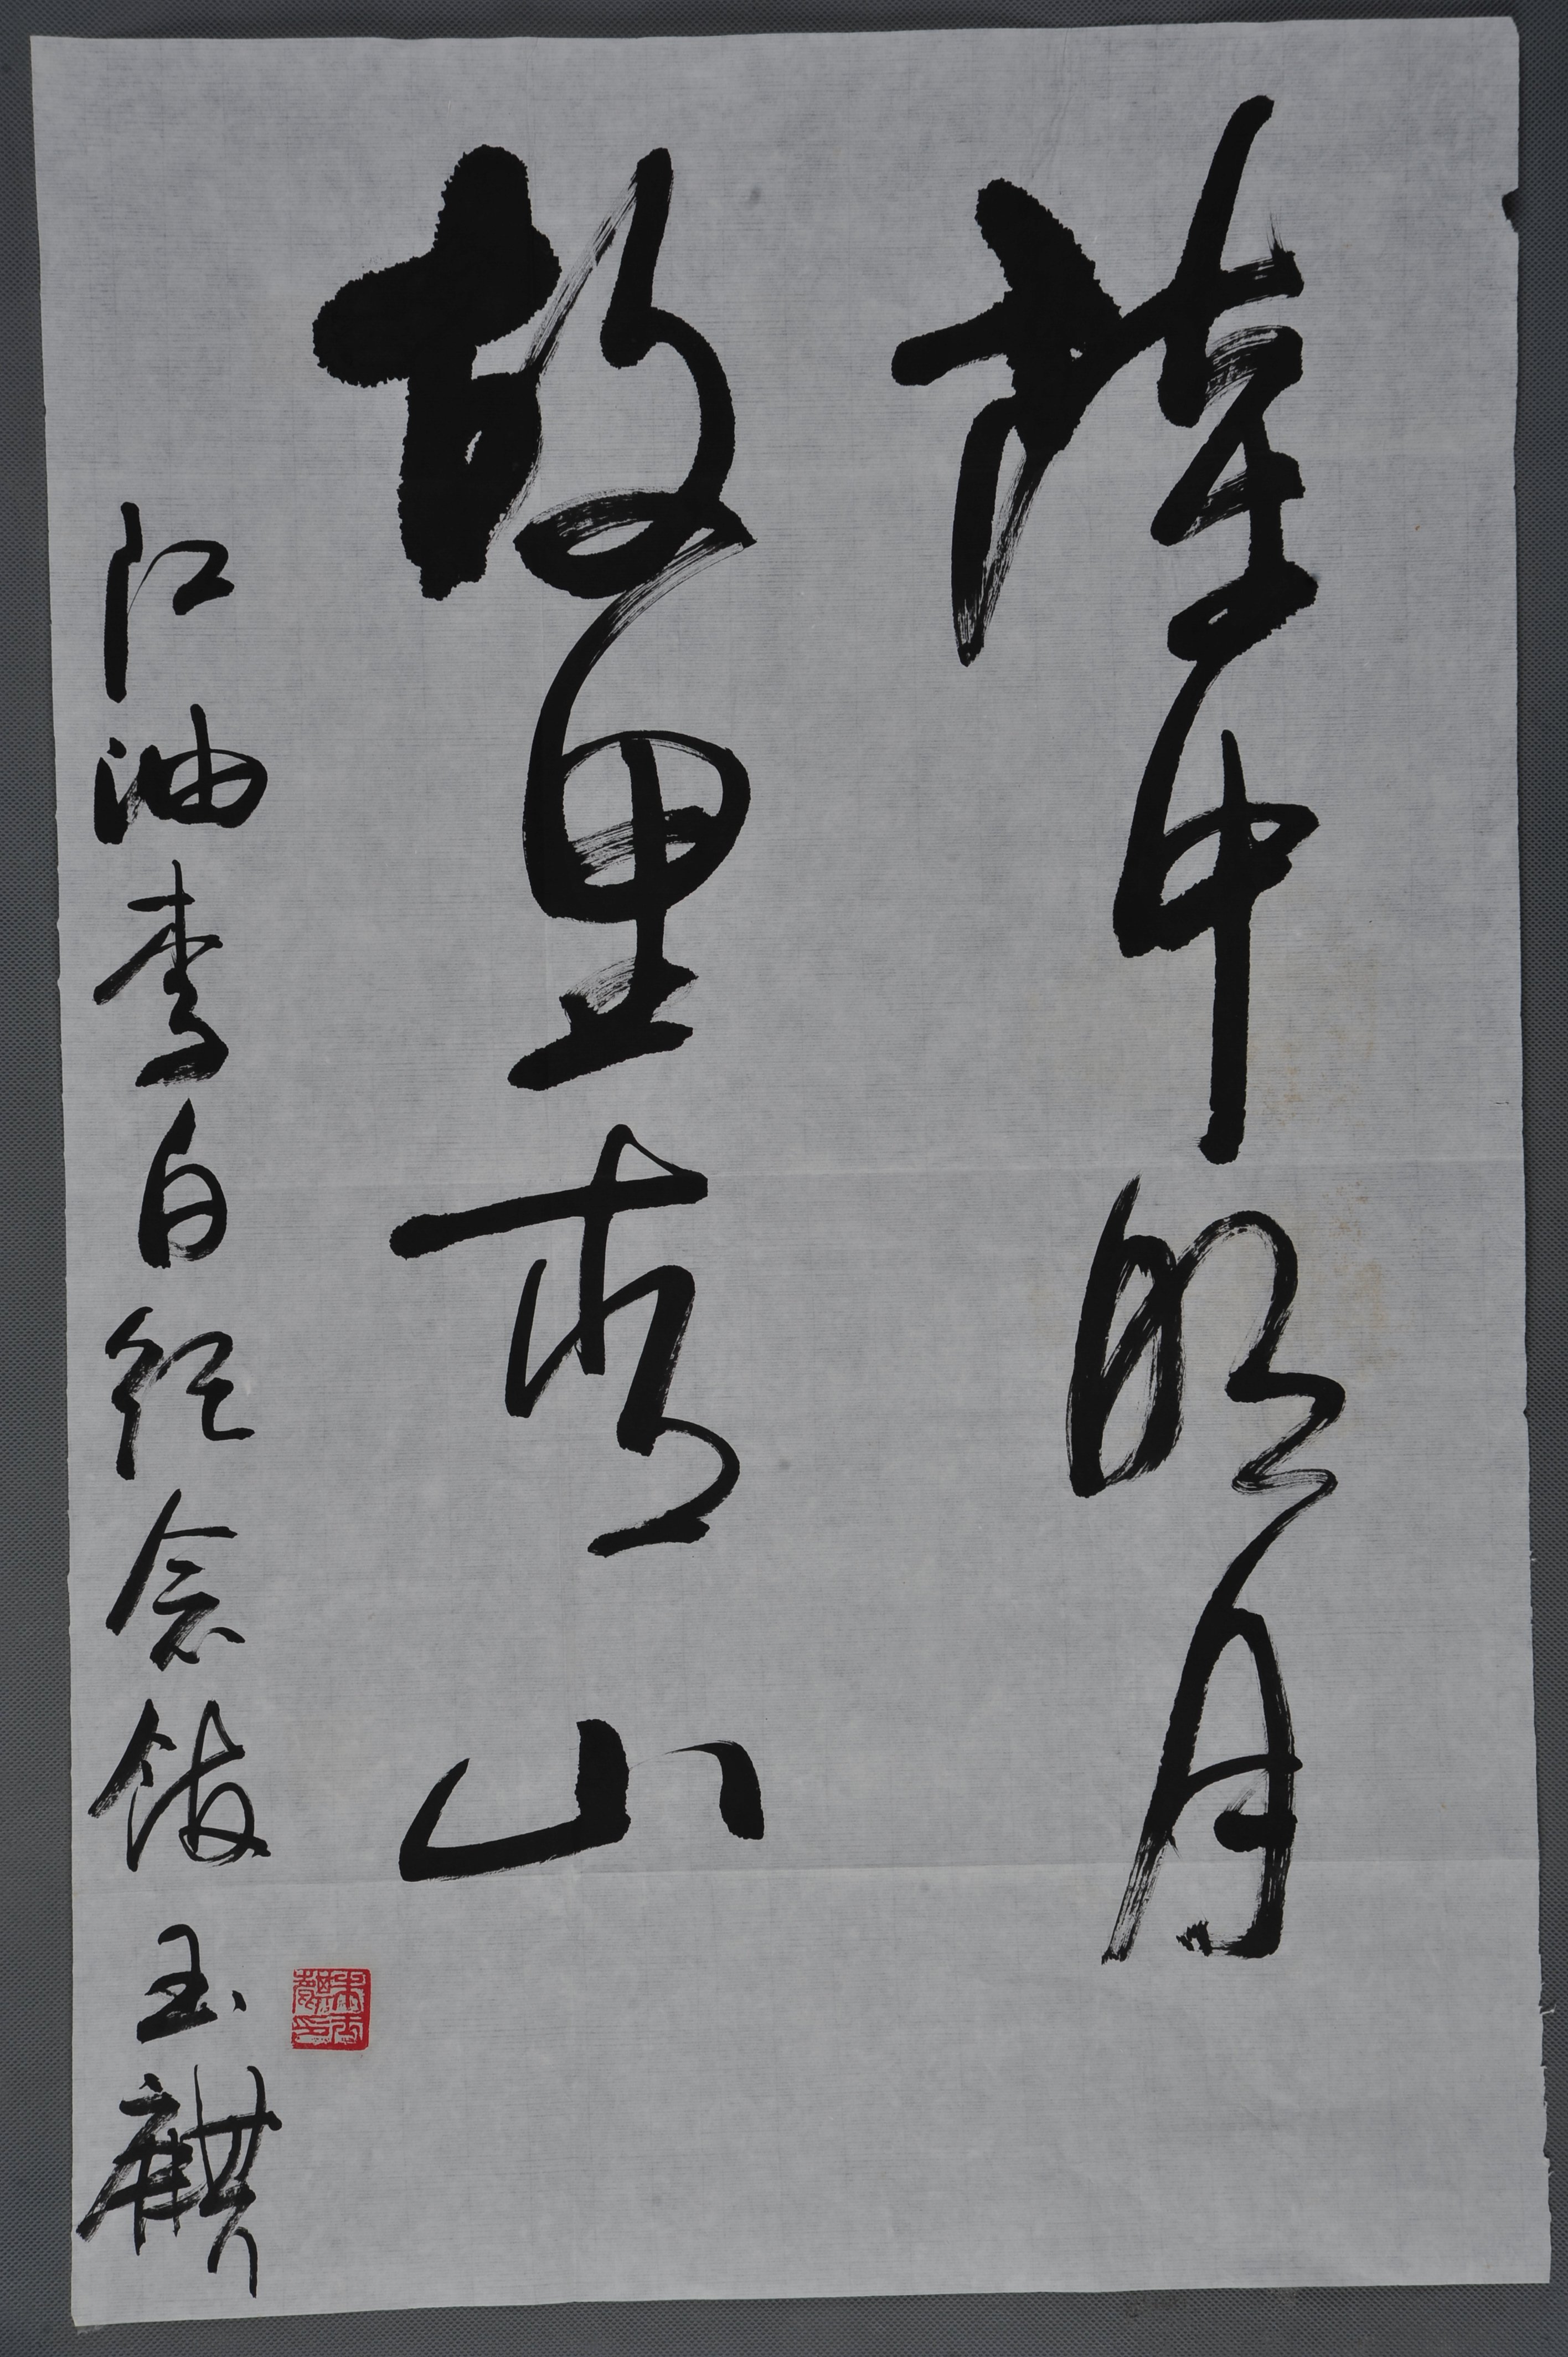 樽中明月
故里秀山
江油李白纪念馆 玉麒